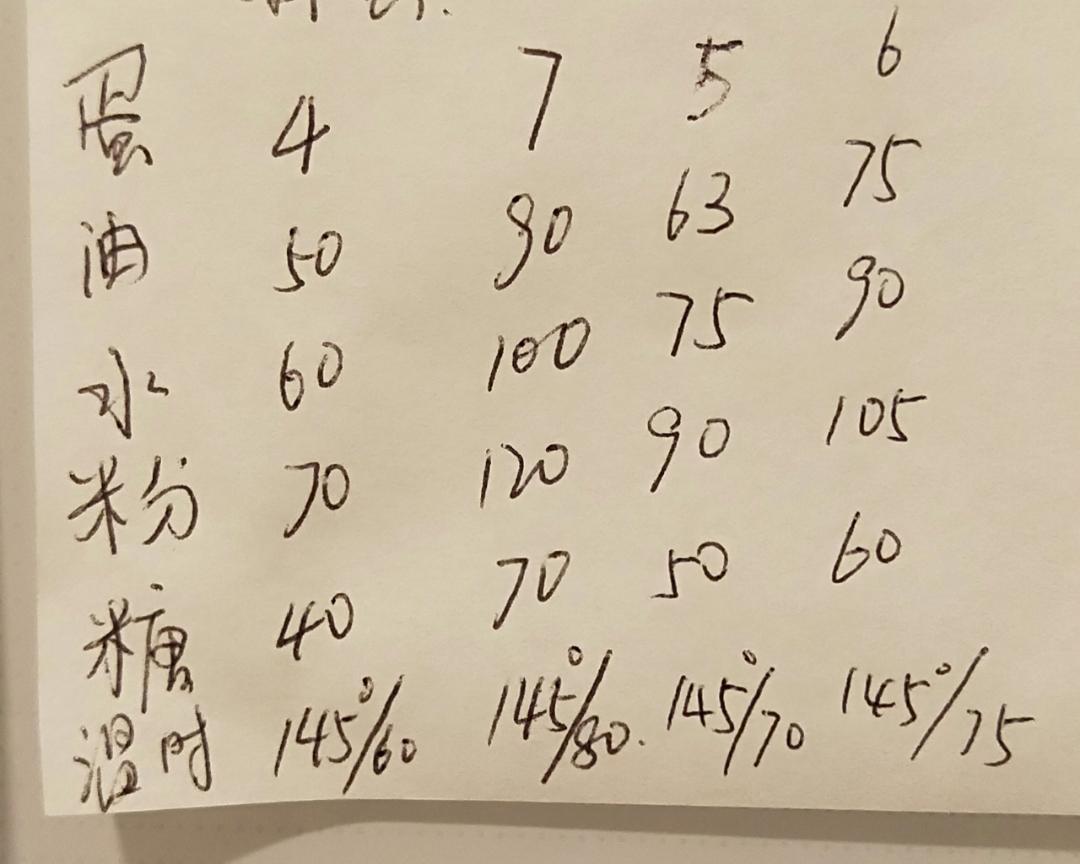 蛋 4 7 5 6
油 50 90 63 75
水 60 100 75 90
米粉 70 120 90 105
糖 40 70 50 60
温时 145°/60 145°/80. 145°/70 145°/75